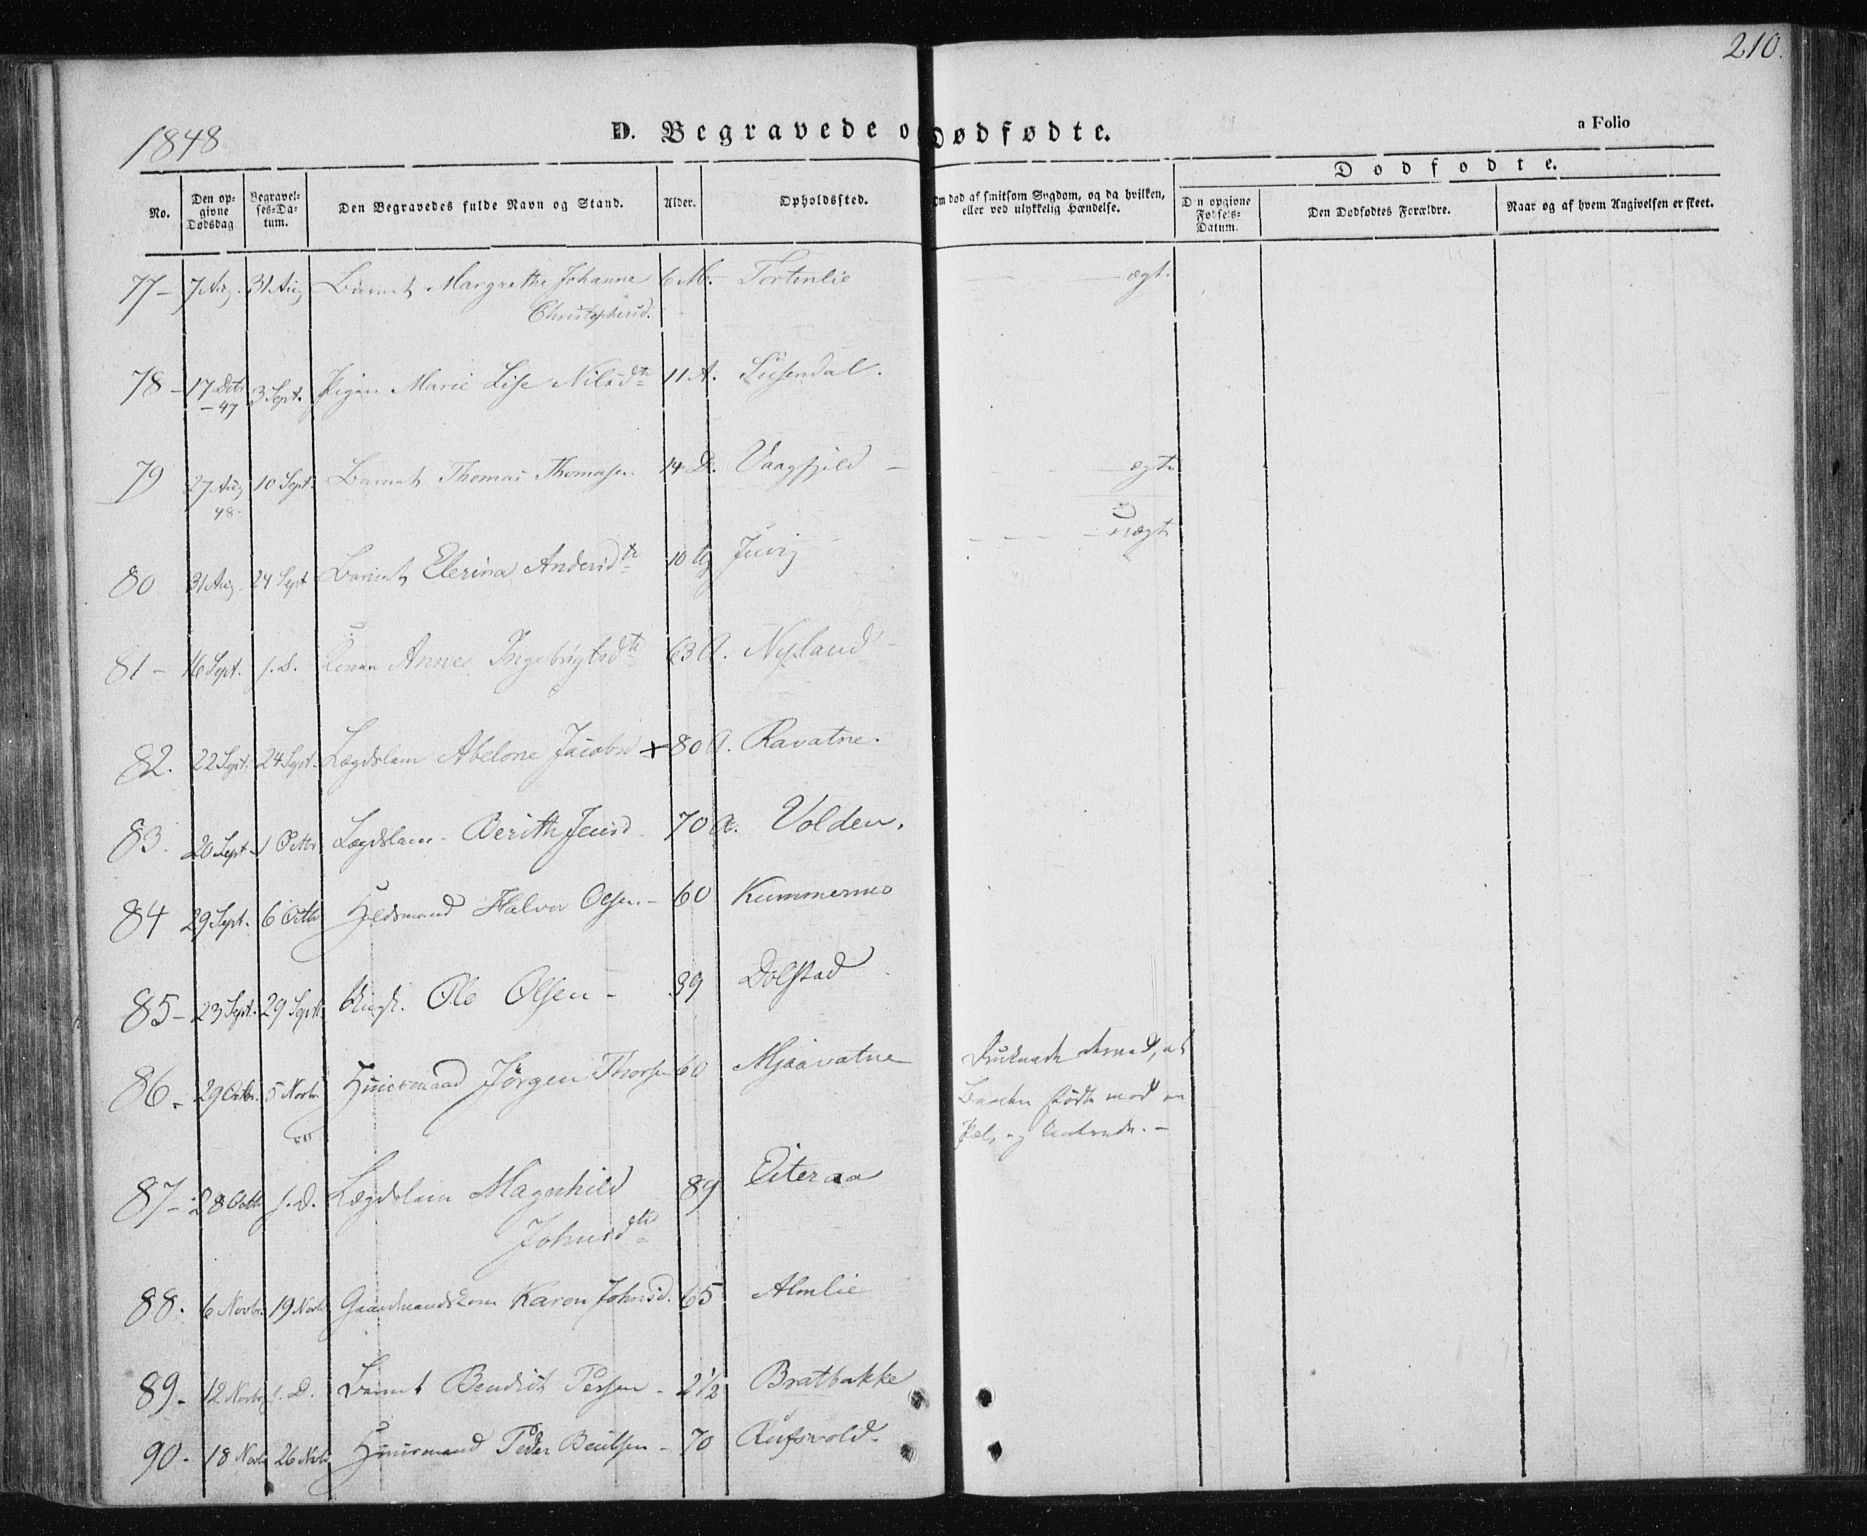 210.
1848
D. Begravede o Dødfødte.
a Folio
Dødfødte.
No.
Den opgivne Dødsdag
Begravelses-Datum.
Den Begravedes fulde Navn og Stand.
Alder.
Opholdssted.
Om død af smitsom Sygdom, og da hvilken, eller ved ulykkelig Hændelse.
D n opgivne Fødsels-Datum.
Den Dødfødtes Forældre.
Naar og af hvem Angivelsen er skeet.
77 - 7 Aug. 31 Aug Barnet Margrethe Johanne 6 M. - ægt.
Christophersd.
78 - 17 - 47 3 Sept. Pigen Marie Lise Nilsdtr 11 A. Susendal.
79 27 Aug 48. 10 Sept. Barnet Thomas Thomasen 14 D. Vaagfjeld - ægte
80 31 Aug. 24 Sept Barnet Elerina Andersdtr 10 uægt
81 - 16 Sept. s. D. Konen Anne Ingebrigtsdtr 63 A. Nyland
82. 22 Sept. 24 Sept. Lægdslem Abelone Jacobsd + 80 A. Ravatne.
83. 20 Sept - 1 Octbr Lægdslem - Berith Jensd - 70 A. Volden.
84 29 Sept. 6 Octbr Halvor Olsen - 60 Kummermo
85 - 23 Sept. 29 Sept. Ole Olsen - 89 Dolstad
86. 29 Octbr. 5 Novbr. Huusmand Jørgen Thorsen 60 Mjaavatne Druknede derved, at
Baaden stødte mod en
Pæl, og
87 - 28 Octb s. D. Lægdslem Magnhild 89 Eiteraa
Johnsdtr
88. 6 Novbr. 19 Novb. Gaardmandskone Karen Johnsd. 65 Almlie
89 - 12 Novbr s. D. Barnet Bendict Persen - 2 1/2 Bratbakke
90 - 18 Novb 26 Novb Huusmand Peder Bentsen - 70